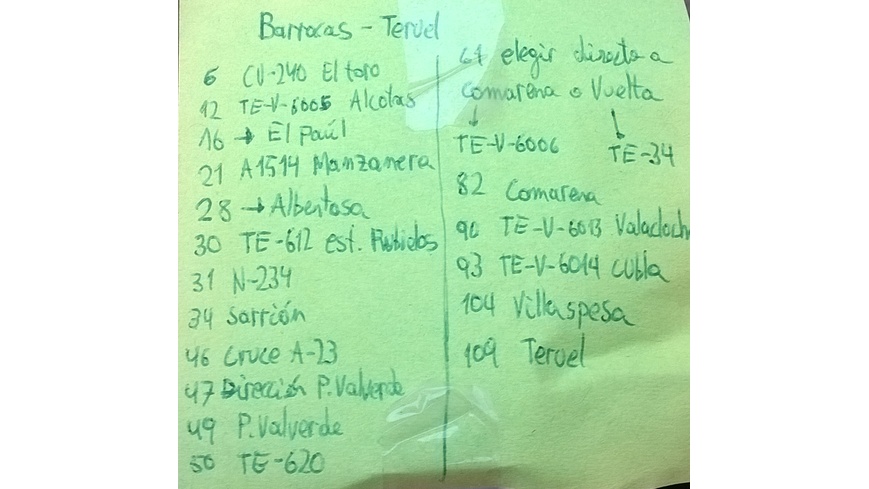 Barracas - Teruel
6 CV-240 El toro
12 TE-V-6005 Alcotas
16 → El Paúl
21 A1514 Manzanera
28 → Albentosa
30 TE-612 est. Rubielos
31 N-234
34 Sarrión
46 Cruce A-23
47 Dirección P.Valverde
49 P.Valverde
50 TE-620
61 elegir directo a
Comarena o Vuelta
↓ ↓
TE-V-6006 TE-34
82 Comarena
90 TE-V-6013 Valacloch
93 TE-V-6014 Cubla
104 Villaspesa
109 Teruel